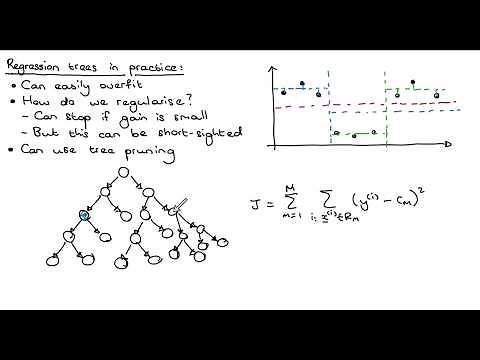 Regression trees in practice:
• Can easily overfit
• How do we regularise?
- Can stop if gain is small
- But this can be short-sighted
• Can use tree pruning
J = ∑_{m=1}^{M} ∑_{i: x^{(i)} ∈ R_M} (y^{(i)} - c_M)^2